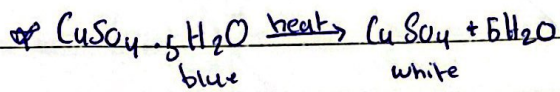 CuSO₄ . 5H₂O heat→ CuSO₄ + 5H₂O
blue white